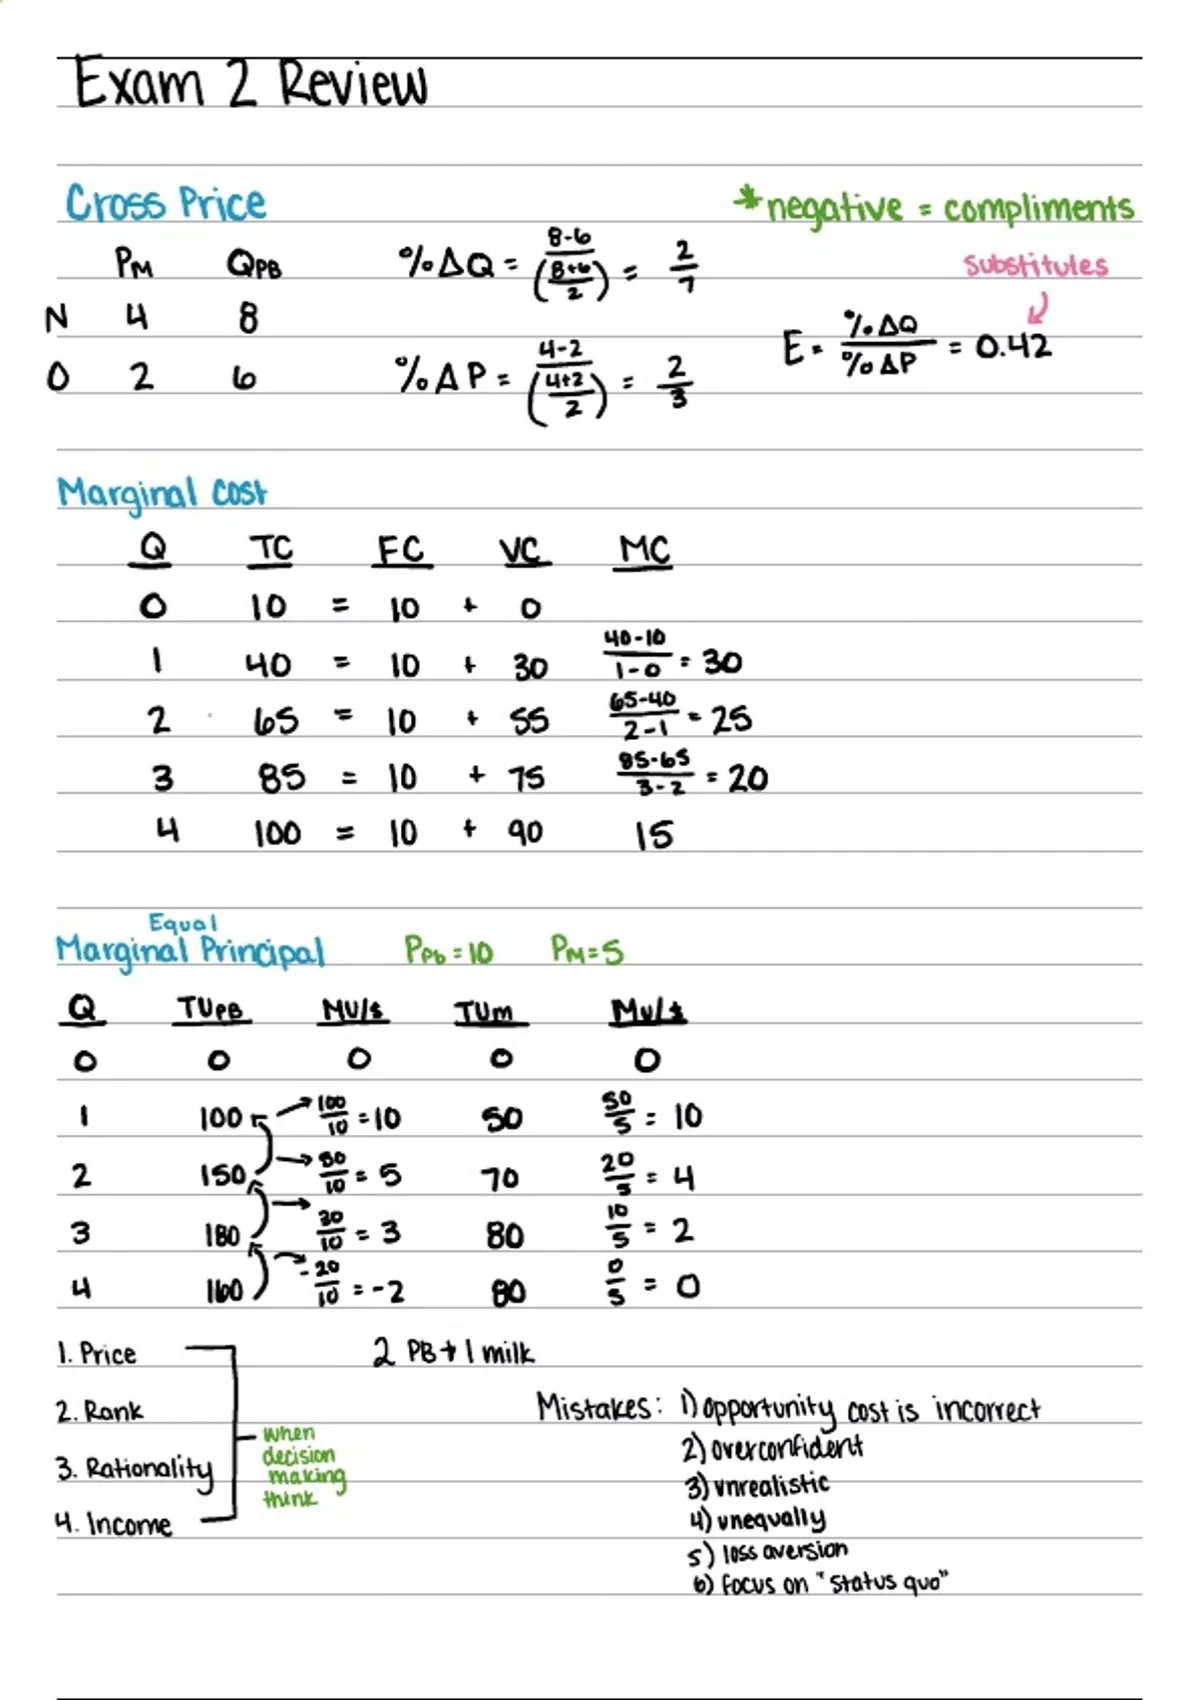 Exam 2 Review
Cross Price *negative = compliments
PM QPB %ΔQ = 8-6/(8+6/2) = 2/7 substitutes
N 4 8 E = %ΔQ/%ΔP = 0.42
O 2 6 %ΔP = 4-2/(4+2/2) = 2/3
Marginal Cost
Q TC FC VC MC
0 10 = 10 + 0
1 40 = 10 + 30 40-10/1-0 = 30
2 65 = 10 + 55 65-40/2-1 = 25
3 85 = 10 + 75 85-65/3-2 = 20
4 100 = 10 + 90 15
Equal
Marginal Principal PPb = 10 PM = 5
Q TUPB MU/$ TUm MU/$
0 0 0 0 0
1 100 100/10 = 10 50 50/5 = 10
2 150 50/10 = 5 70 20/5 = 4
3 180 30/10 = 3 80 10/5 = 2
4 160 -20/10 = -2 80 0/5 = 0
1. Price 2 PB + 1 milk
2. Rank
3. Rationality
4. Income
when
decision
making
think
Mistakes: 1) opportunity cost is incorrect
2) overconfident
3) unrealistic
4) unequally
5) loss aversion
6) focus on "status quo"